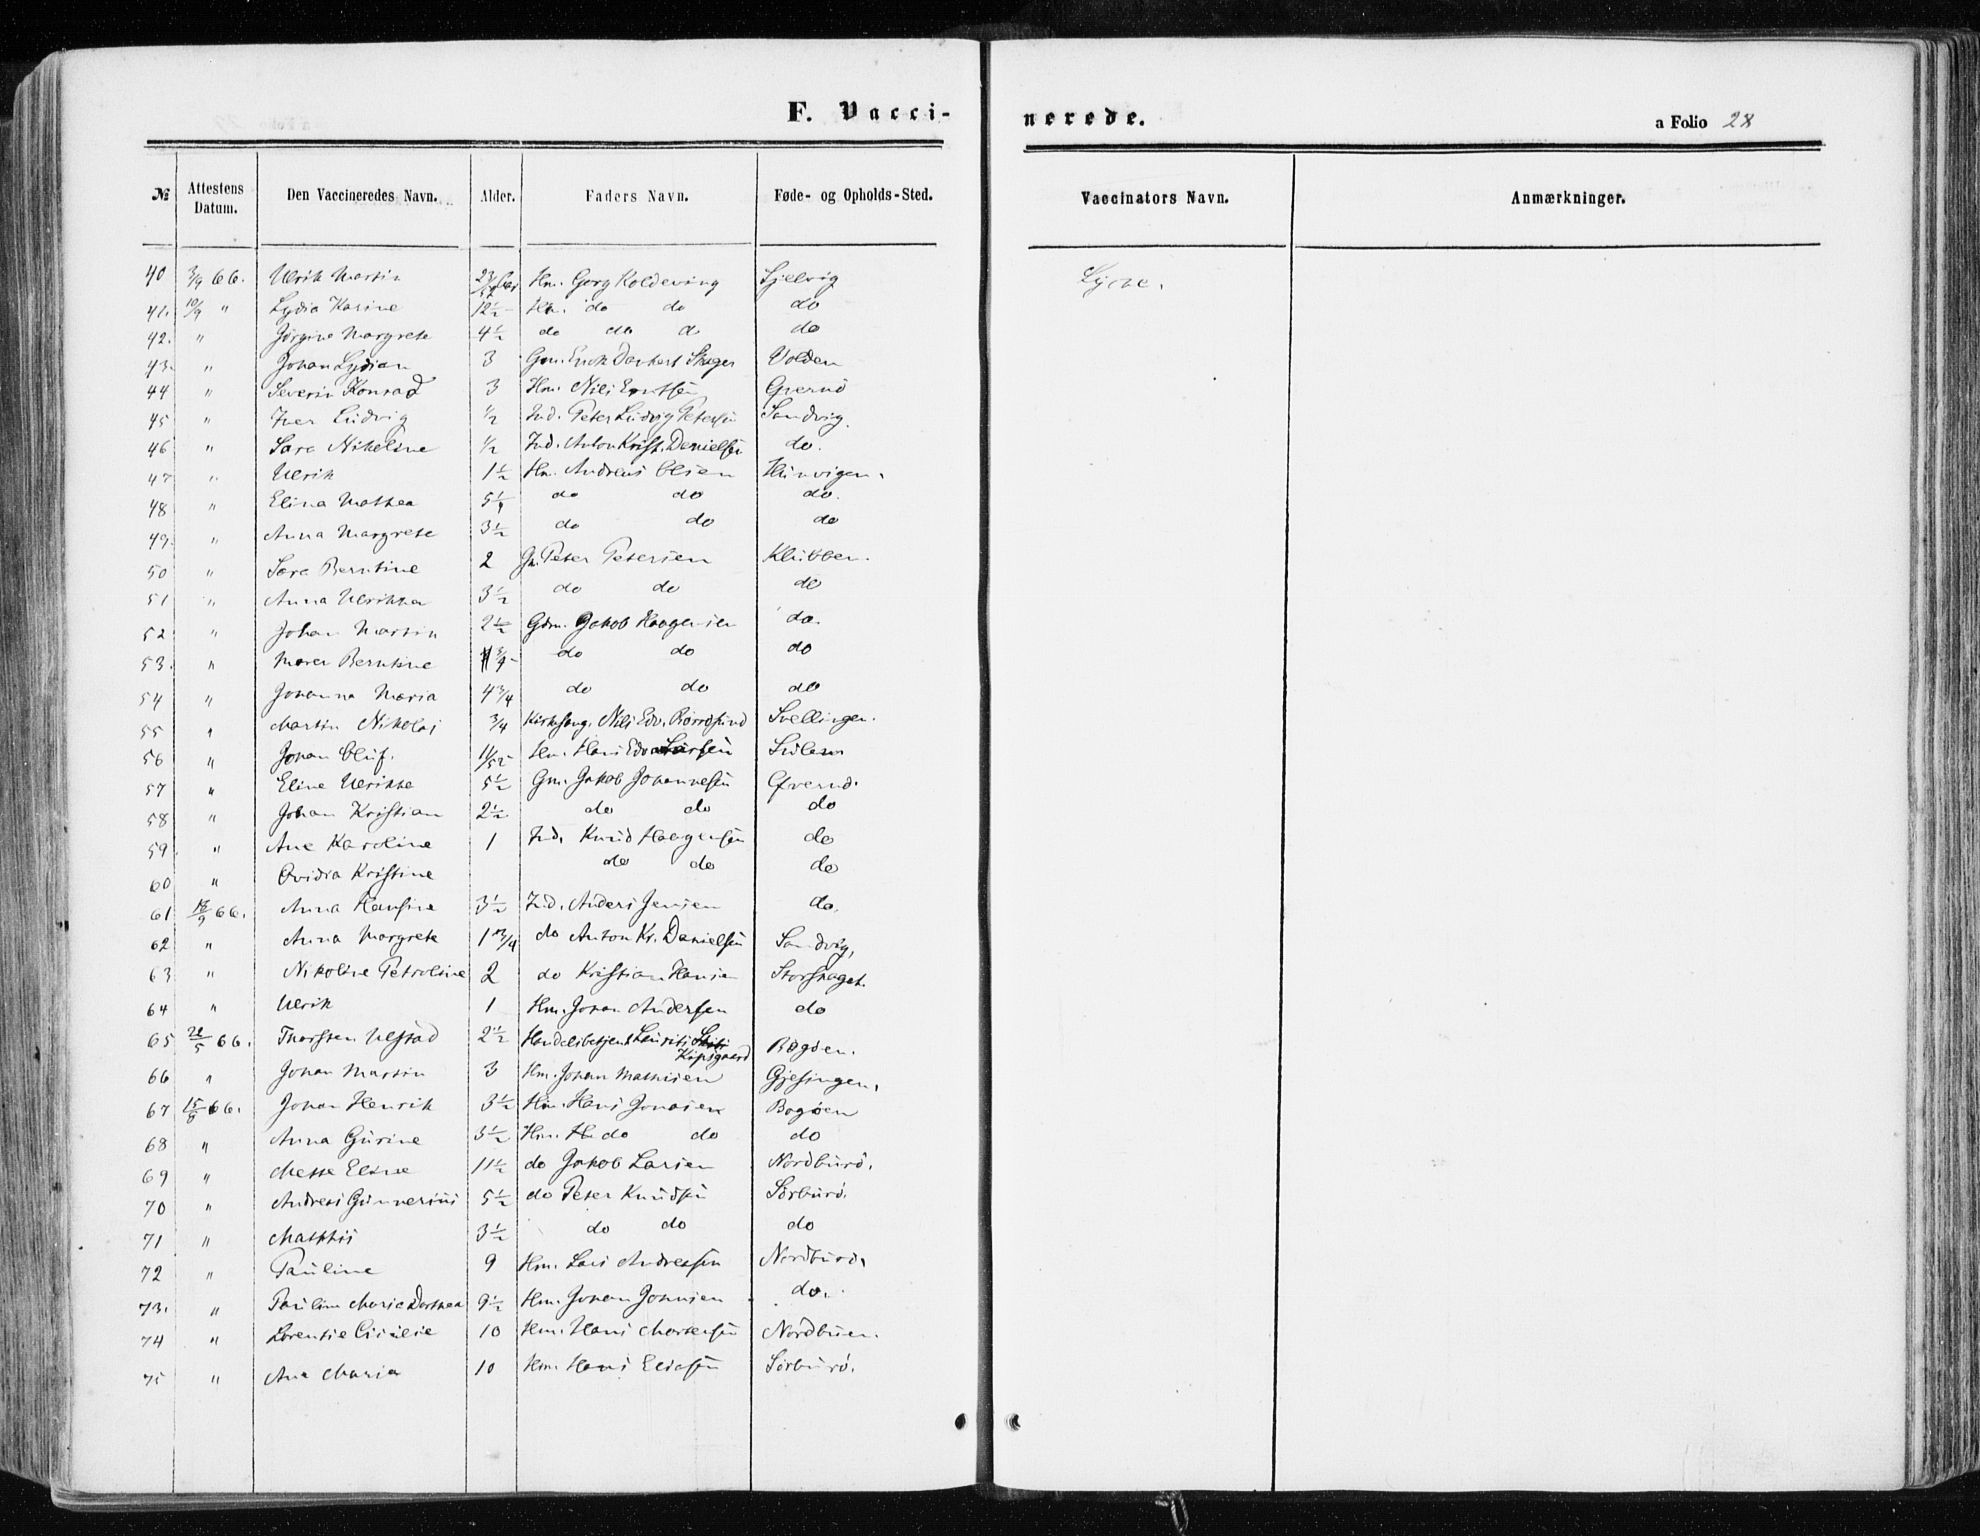 F. Vacci- nerede. a Folio 28
№ Attestens Datum. Den Vaccineredes Navn. Alder. Faders Navn. Føde- og Opholds-Sted. Vaccinators Navn. Anmærkninger.
40 3/9 66. Ulrik Martin Hm. Georg Koldeving Sjelvig
41. 10/9 " Lydia Karine 12½ Hm. do do do
42. " Jørgine Margrete 4½ do do do do
43. " Johan Lydian 3 Gm. Erik Dankert Skager Volden
44 " Severin Konrad 3 Hm. Nils Erntsen Qvernø
45 " Iver Ludvig ½ Ind. Peter Ludvig Petersen Sandvig.
46 " Sara Nikoline ½ Ind. Anton Krist. Danielsen do.
47 " Ulrik 1½ Hm. Andreas Olsen Hunvigen.
48 " Elina Mathea 5¼ do do do.
49. " Anna Margrete 3½ do do do
50 " Sara Berntine 2 Gm. Peter Petersen Klubben.
51 " Anna Ulrikka 3½ do do do
52 " Johan Martin 2½ Gdm. Jakob Haagensen do.
53. " Maren Berntine do do do
54 " Johanna Maria 4¾ do do do
55 " Martin Nikolai ¾ Kirkesang. Nils Edv. Rørdsund Svellingen.
56 " Johan Oluf. 11/52 Hm. Hans Edv. Larsen
57 " Eline Ulrikke 5½ Gm. Jakob Johannesen Qvernø.
58 " Johan Kristian 2½ do do do
59 " Ane Karoline 1 Ind. Knud Haagensen do
60 " Ovidia Kristine do do do
61 18/9 66. Anna Hansine 3½ Ind. Anders Jensen do.
62 " Anna Margrete 1¾ do Anton Kr. Danielsen Sandvig,
63 " Nikoline Petroline 2 do Kristian Hansen Storskaget.
64 " Ulrik 1 Hm. Johan Andersen do
65 66. Thorsten Ulstad 2½ Handelsbetjent Laurits Kipsgaard Bogøen.
66 " Johan Martin 3 Hm. Johan Mathisen Gjesingen.
67 15/8 66. Johan Henrik 3½ Hm. Hans Jonasen Bogøen
68 " Anna Gurine 3½ Hm. H. do do do
69 " Mette Eline 11½ do Jakob Larsen Nordburø.
70 " Andreas Gunnerius 5½ do Peter Knudsen Sørburø.
71 " Matthis 3½ do do do
72 " Pauline 9 Hm. Lars Andreasen Nordburø.
73. " Pauline Marie Dorthea 9½ Hm. Johan Johnsen do.
74 " Lorentse Cicilie 10 Hm. Hans Mortensen Nordbuen.
75 " Ane Maria 10 Hm. Hans Eliasen Sørburø.